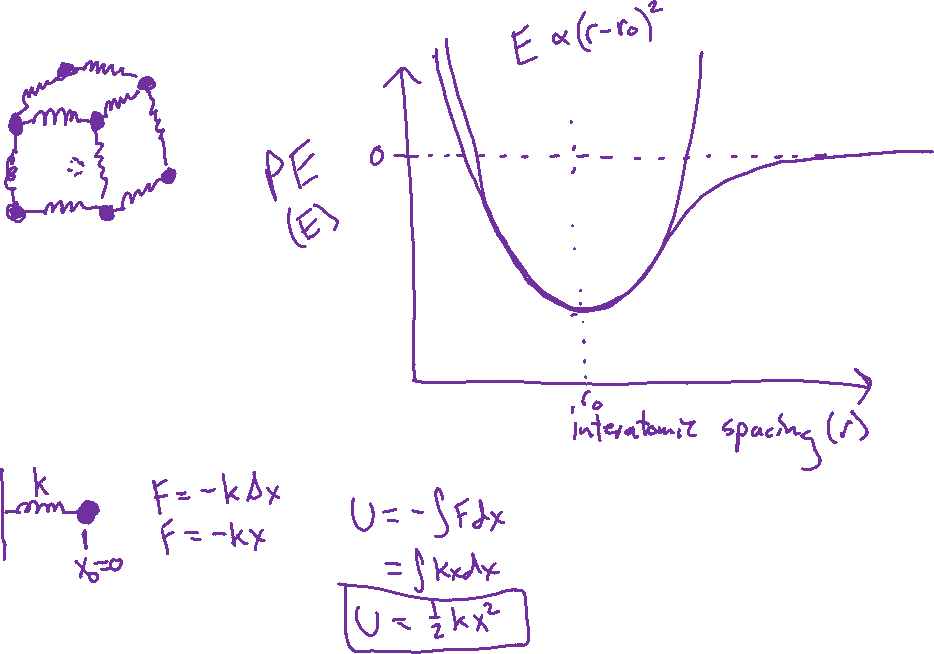 E ∝ (r-r₀)²
PE
(E)
0
r₀
interatomic spacing (r)
k
x₀=0
F = -kΔx
F = -kx
U = -∫Fdx
= ∫kxdx
U = ½kx²